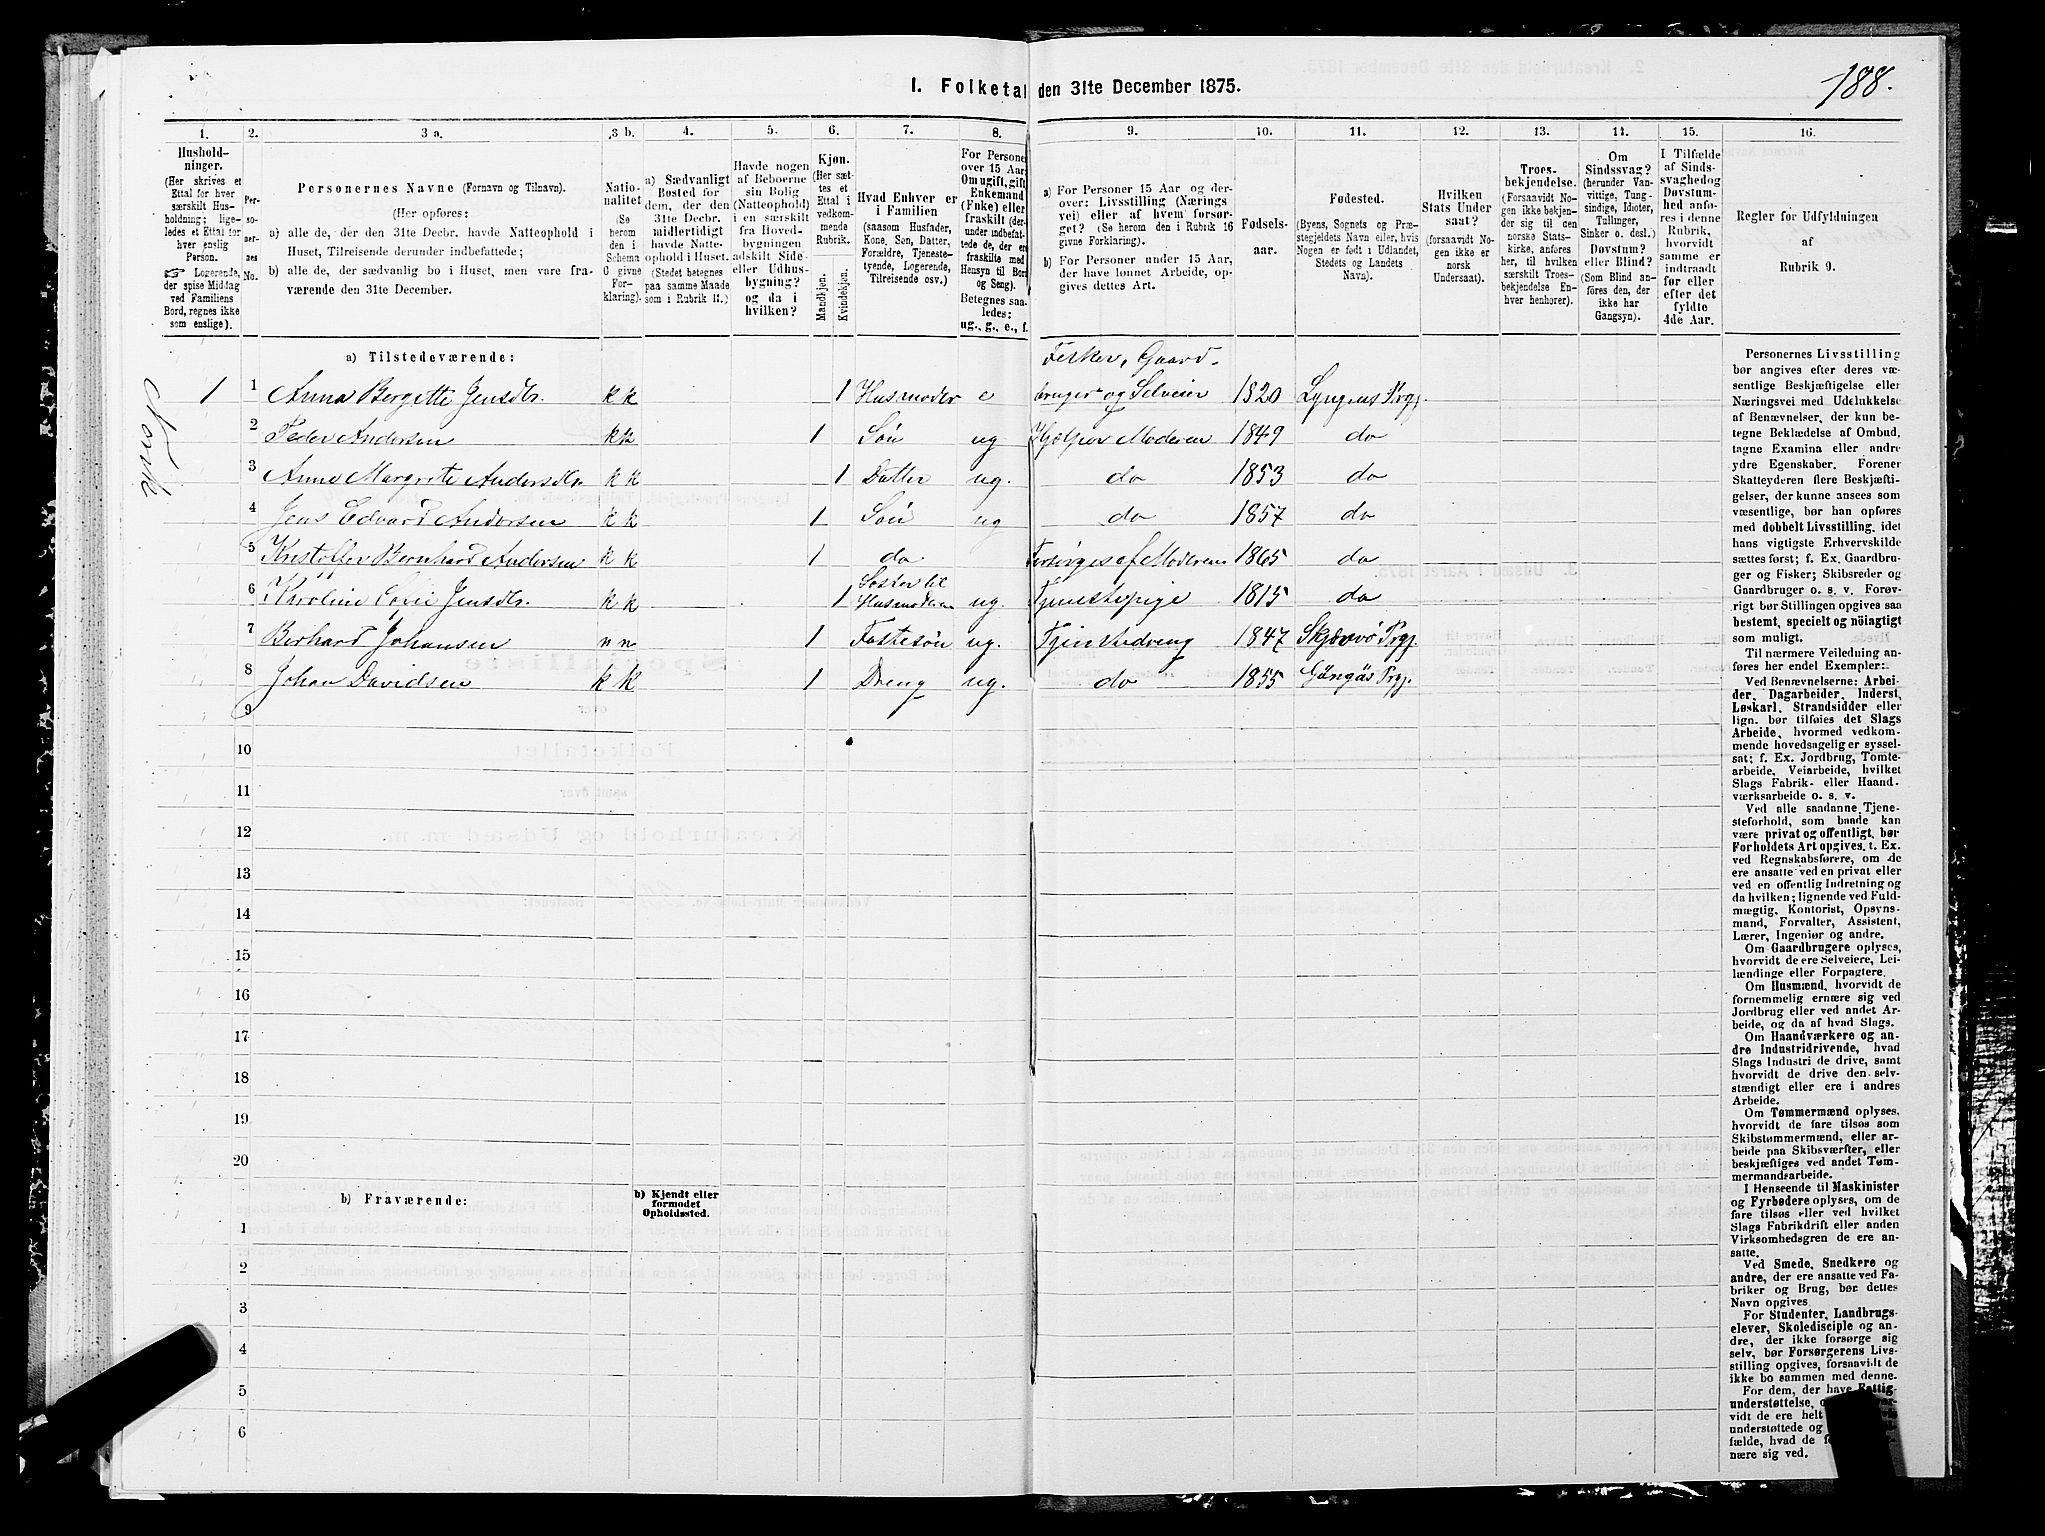 I. Folketal den 31te December 1875.
188.
1.
Hushold-
ninger.
(Her skrives et
Ettal for hver
særskilt Hus-
holdning; lige-
ledes et Ettal for
hver enslig
Person.
☞ Logerende,
der spise Middag
ved Familiens
Bord, regnes ikke
som enslige).
2.
Per-
so-
ner-
nes
No.
3 a.
Personernes Navne (Fornavn og Tilnavn).
(Her opføres:
a) alle de, der den 31te Decbr. havde Natteophold i
Huset, Tilreisende derunder indbefattede;
b) alle de, der sædvanlig bo i Huset, men vare fra-
værende den 31te December.
3 b.
Natio-
nalitet
(Se
herom
den i
Schema
O givne
For-
klaring).
4.
a) Sædvanligt
Bosted for
dem, der den
31te Decbr.
midlertidigt
havde Natte-
ophold i Huset.
(Stedet betegnes
paa samme Maade
som i Rubrik 11.)
5.
Havde nogen
af Beboerne
sin Bolig
(Natteophold)
i en særskilt
fra Hoved-
bygningen
adskilt Side-
eller Udhus-
bygning?
og da i
hvilken?
6.
Kjøn.
(Her sæt-
tes et
Ettal i
vedkom-
mende
Rubrik.
Mandkjøn.
Kvindekjøn.
7.
Hvad Enhver er
i Familien
(saasom Husfader,
Kone, Søn, Datter,
Forældre, Tjeneste-
tyende, Logerende,
Tilreisende osv.)
8.
For Personer
over 15 Aar:
Om ugift, gift,
Enkemand
(Enke) eller
fraskilt (der-
under indbefat-
tede de, der ere
fraskilte med
Hensyn til Bord
og Seng).
Betegnes saa-
ledes:
ug., g., e., f.
9.
a) For Personer 15 Aar og der-
over: Livsstilling (Nærings
vei) eller af hvem forsør-
get? (Se herom den i Rubrik 16
givne Forklaring).
b) For Personer under 15 Aar,
der have lønnet Arbeide, op-
gives dettes Art.
10.
Fødsels-
aar.
11.
Fødested.
(Byens, Sognets og Præ-
stegjeldets Navn eller, hvis
Nogen er født i Udlandet,
Stedets og Landets
Navn).
12.
Hvilken
Stats Under
saat?
(forsaavidt No-
gen ikke er
norsk
Undersaat).
13.
Troes-
bekjendelse.
(Forsaavidt No-
gen ikke bekjen-
der sig til den
norske Stats-
kirke, anføres
her, til hvilken
særskilt Troes-
bekjendelse En-
hver henhører).
14.
Om
Sindssvag?
(herunder Van-
vittige, Tung-
sindige, Idioter,
Tullinger,
Sinker o. desl.)
Døvstum?
eller Blind?
(Som Blind an-
føres den, der
ikke har
Gangsyn).
15.
I Tilfælde
af Sinds-
svaghed og
Døvstum-
hed anfø-
res i denne
Rubrik,
hvorvidt
samme er
indtraadt
før eller
efter det
fyldte
4de Aar.
16.
Regler for Udfyldningen
af
Rubrik 9.
a) Tilstedeværende:
Norsk
Fisker, Gaard-
1 1 Anna Bergette Jensdtr. kk 1 Husmoder e bruger og Selveier 1820 Lyngens Prgj.
2 Peder Andersen kk 1 Søn ug Hjelper Moderen 1849 do
3 Anne Margrete Andersdtr. kk 1 Datter ug. do 1853 do
4 Jens Edvard Andersen kk 1 Søn ug do 1857 do
5 Kristoffer Bernhard Andersen kk 1 do Forsørges af Moderen 1865 do
Søster til
6 Karoline Sofie Jensdtr. kk 1 Husmoderen ug. Tjenstepige 1815 do
7 Berhard Johansen nn 1 Fostesøn ug. Tjenstedreng 1847 Skjervø Prgj.
8 Johan Davidsen kk 1 Dreng ug. do 1855 Prgj.
9
10
11
12
13
14
15
16
17
18
19
20
b) Fraværende:
b) Kjendt eller
formodet
Opholdssted.
1
2
3
4
5
6
Personernes Livsstilling
bør angives efter deres væ-
sentlige Beskjæftigelse eller
Næringsvei med Udelukkelse
af Benævnelser, der kun be-
tegne Beklædelse af Ombud,
tagne Examina eller andre
ydre Egenskaber. Forener
Skatteyderen flere Beskjæfti-
gelser, der kunne ansees som
væsentlige, bør han opføres
med dobbelt Livsstilling, idet
hans vigtigste Erhvervskilde
sættes først; f. Ex. Gaardbru-
ger og Fisker; Skibsreder og
Gaardbruger o. s. v. Forøv-
rigt bør Stillingen opgives saa
bestemt, specielt og nöiagtigt
som muligt.
Til nærmere Veiledning an-
føres her endel Exempler:
Ved Benævnelserne: Arbei-
der, Dagarbeider, Inderst,
Løskarl, Strandsidder eller
lign. bør tilføies det Slags
Arbeide, hvormed vedkom-
mende hovedsagelig er syssel-
sat; f. Ex. Jordbrug, Tomte-
arbeide, Veiarbeide, hvilket
Slags Fabrik- eller Haand-
værksarbeide o. s. v.
Ved alle saadanne Tjene-
steforhold, som baade kan
være privat og offentligt, bør
Forholdets Art opgives, t. Ex.
ved Regnskabsførere, om de
ere ansatte ved en privat eller
ved en offentlig Indretning og
da hvilken; lignende ved Fuld-
mægtig, Kontorist, Opsyns-
mand, Forvalter, Assistent,
Lærer, Ingeniør og andre.
Om Gaardbrugere oplyses,
hvorvidt de ere Selveiere, Lei-
lændinge eller Forpagtere.
Om Husmænd, hvorvidt de
fornemmelig ernære sig ved
Jordbrug eller ved andet Ar-
beide, og da af hvad Slags.
Om Haandværkere og an-
dre Industridrivende, hvad
Slags Industri de drive, samt
hvorvidt de drive den selv-
stændigt eller ere i andres
Arbeide.
Om Tømmermænd oplyses,
hvorvidt de fare tilsøs som
Skibstømmermænd, eller ar-
beide paa Skibsværfter, eller
beskjæftiges ved andet Tøm-
mermandsarbeide.
I Henseende til Maskinister
og Fyrbødere oplyses, om de
fare tilsøs eller ved hvilket
Slags Fabrikdrift eller anden
Virksomhedsgren de ere an-
satte.
Ved Smede, Snedkere og
andre, der ere ansatte ved Fa-
briker og Brug, bør dettes
Navn opgives.
For Studenter, Landbrugs-
elever, Skoledisciple og an-
dre, der ikke forsørge sig
selv, bør Forsørgerens Livs-
stilling opgives, forsaavidt de
ikke bo sammen med denne.
For dem, der have Fattig-
understøttelse,
vidt de ere helt
understøttede og
fælde, hvad de
nære sig ved.